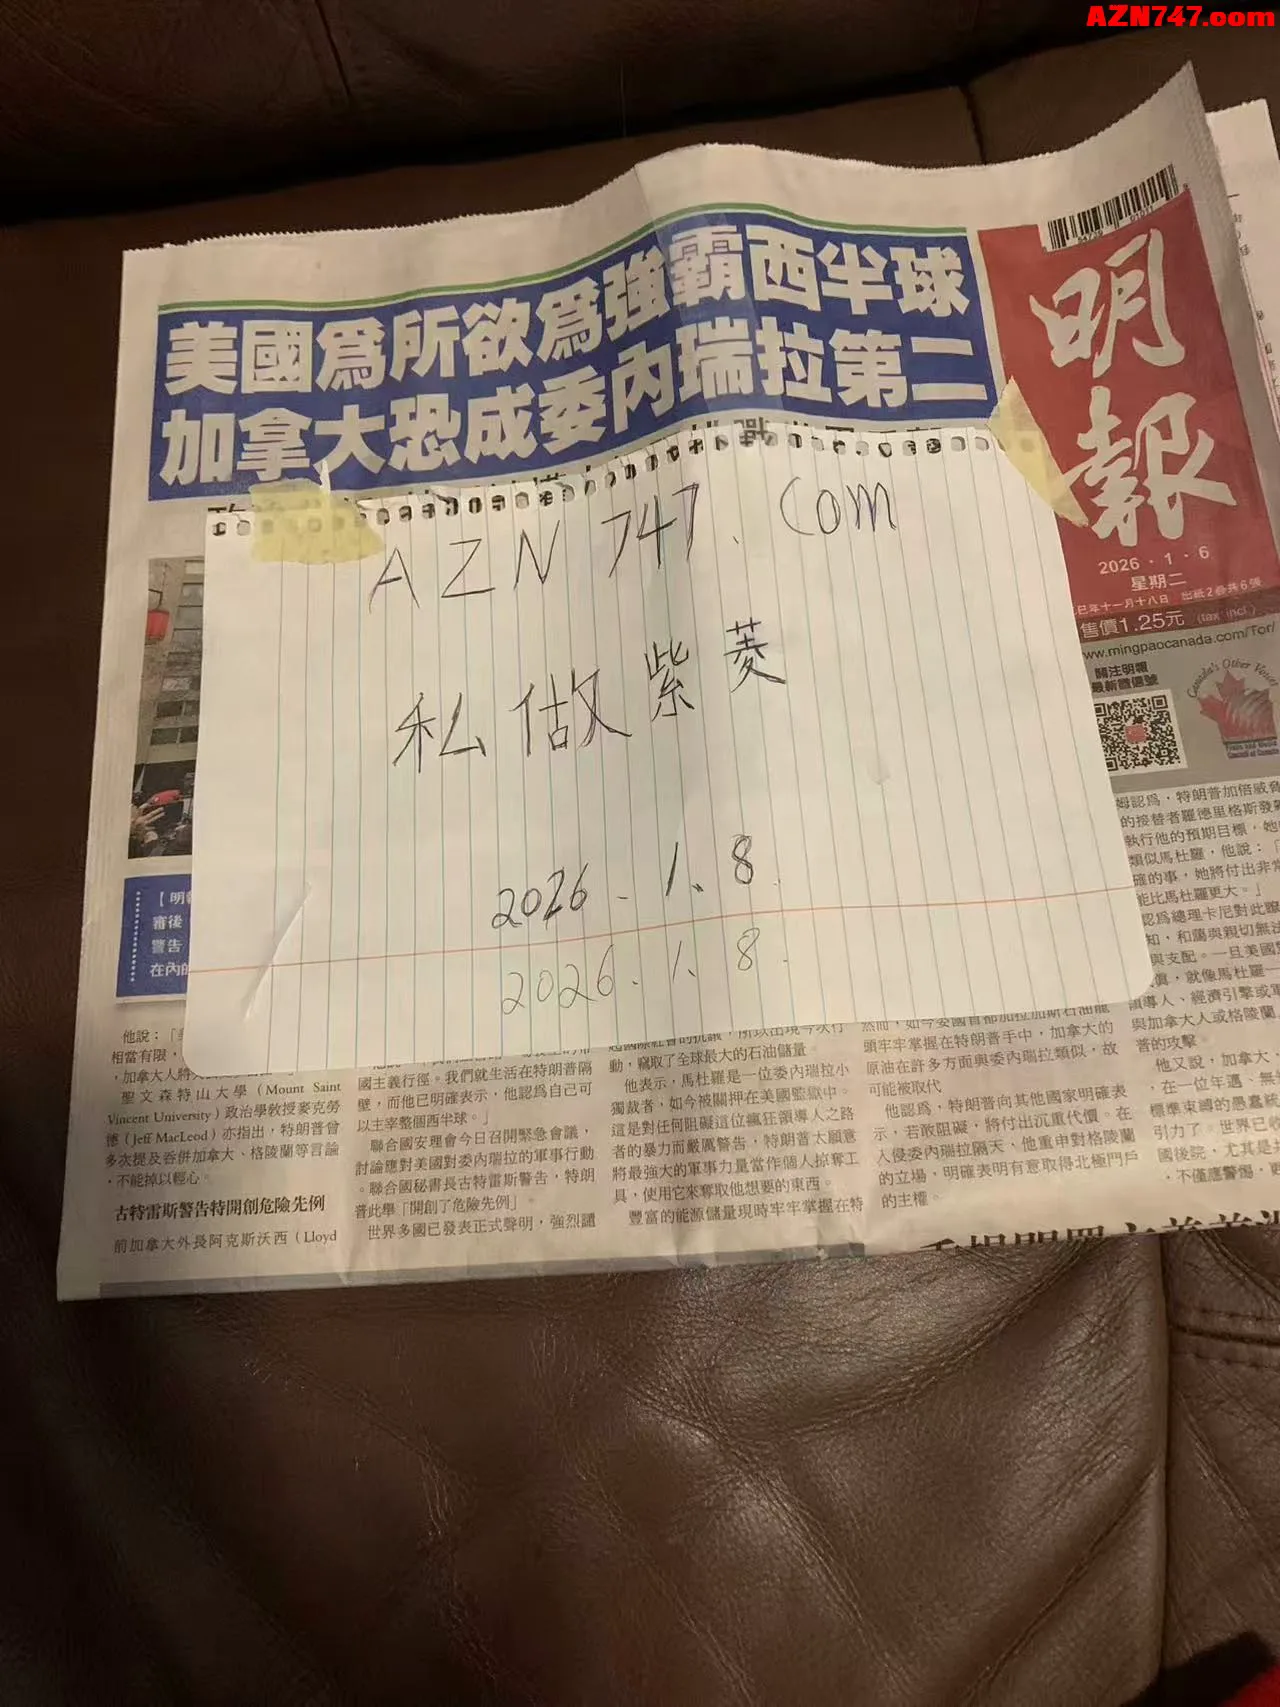 AZN747.com
美國爲所欲爲強霸西半球
加拿大恐成委內瑞拉第二
明報
2026・1・6
星期二
巳年十一月十八日 出紙2叠共6張
售價1.25元 (tax incl.)
www.mingpaocanada.com/Tor/
關注明報
最新微信號
Canada's Other Voice
AZN 747. Com
私做紫菱
2026. 1. 8.
2026. 1. 8.
【明
審後
警告
在內的
他說：「
相當有限，
，加拿大人將
聖文森特山大學（Mount Saint
Vincent University）政治學教授麥克勞
德（Jeff MacLeod）亦指出，特朗普曾
多次提及吞併加拿大、格陵蘭等言論
，不能掉以輕心。
古特雷斯警告特開創危險先例
前加拿大外長阿克斯沃西（Lloyd
國主義行徑。我們就生活在特朗普隔
壁，而他已明確表示，他認爲自己可
以主宰整個西半球。」
聯合國安理會今日召開緊急會議，
討論應對美國對委內瑞拉的軍事行動
。聯合國秘書長古特雷斯警告，特朗
普此舉「開創了危險先例」。
世界多國已發表正式聲明，強烈譴
起國際社會的抗議，所以出現今次行
動，竊取了全球最大的石油儲量
他表示，馬杜羅是一位委內瑞拉小
獨裁者，如今被關押在美國監獄中。
這是對任何阻礙這位瘋狂領導人之路
者的暴力而嚴厲警告，特朗普太願意
將最強大的軍事力量當作個人掠奪工
具，使用它來奪取他想要的東西。
豐富的能源儲量現時牢牢掌握在特
然而，如今委國首都加拉加斯石油龍
頭牢牢掌握在特朗普手中，加拿大的
原油在許多方面與委內瑞拉類似，故
可能被取代
他認爲，特朗普向其他國家明確表
示，若敢阻礙，將付出沉重代價。在
入侵委內瑞拉隔天，他重申對格陵蘭
的立場，明確表明有意取得北極門戶
的主權。
姆認爲，特朗普加倍威脅
的接替者羅德里格斯發
執行他的預期目標，她
類似馬杜羅，他說：「
確的事，她將付出非常
能比馬杜羅更大。」
認爲總理卡尼對此瞭
知，和藹與親切無法
與支配。一旦美國
眞，就像馬杜羅一
領導人、經濟引擎或軍
與加拿大人或格陵蘭
普的攻擊。
他又說，加拿大、
，在一位年邁、無
標準束縛的愚蠢統
引力了。世界已收
國後院，尤其是
，不僅應警惕，更